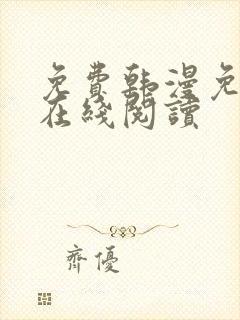 免費韩漫免
在綫閱讀
齊優